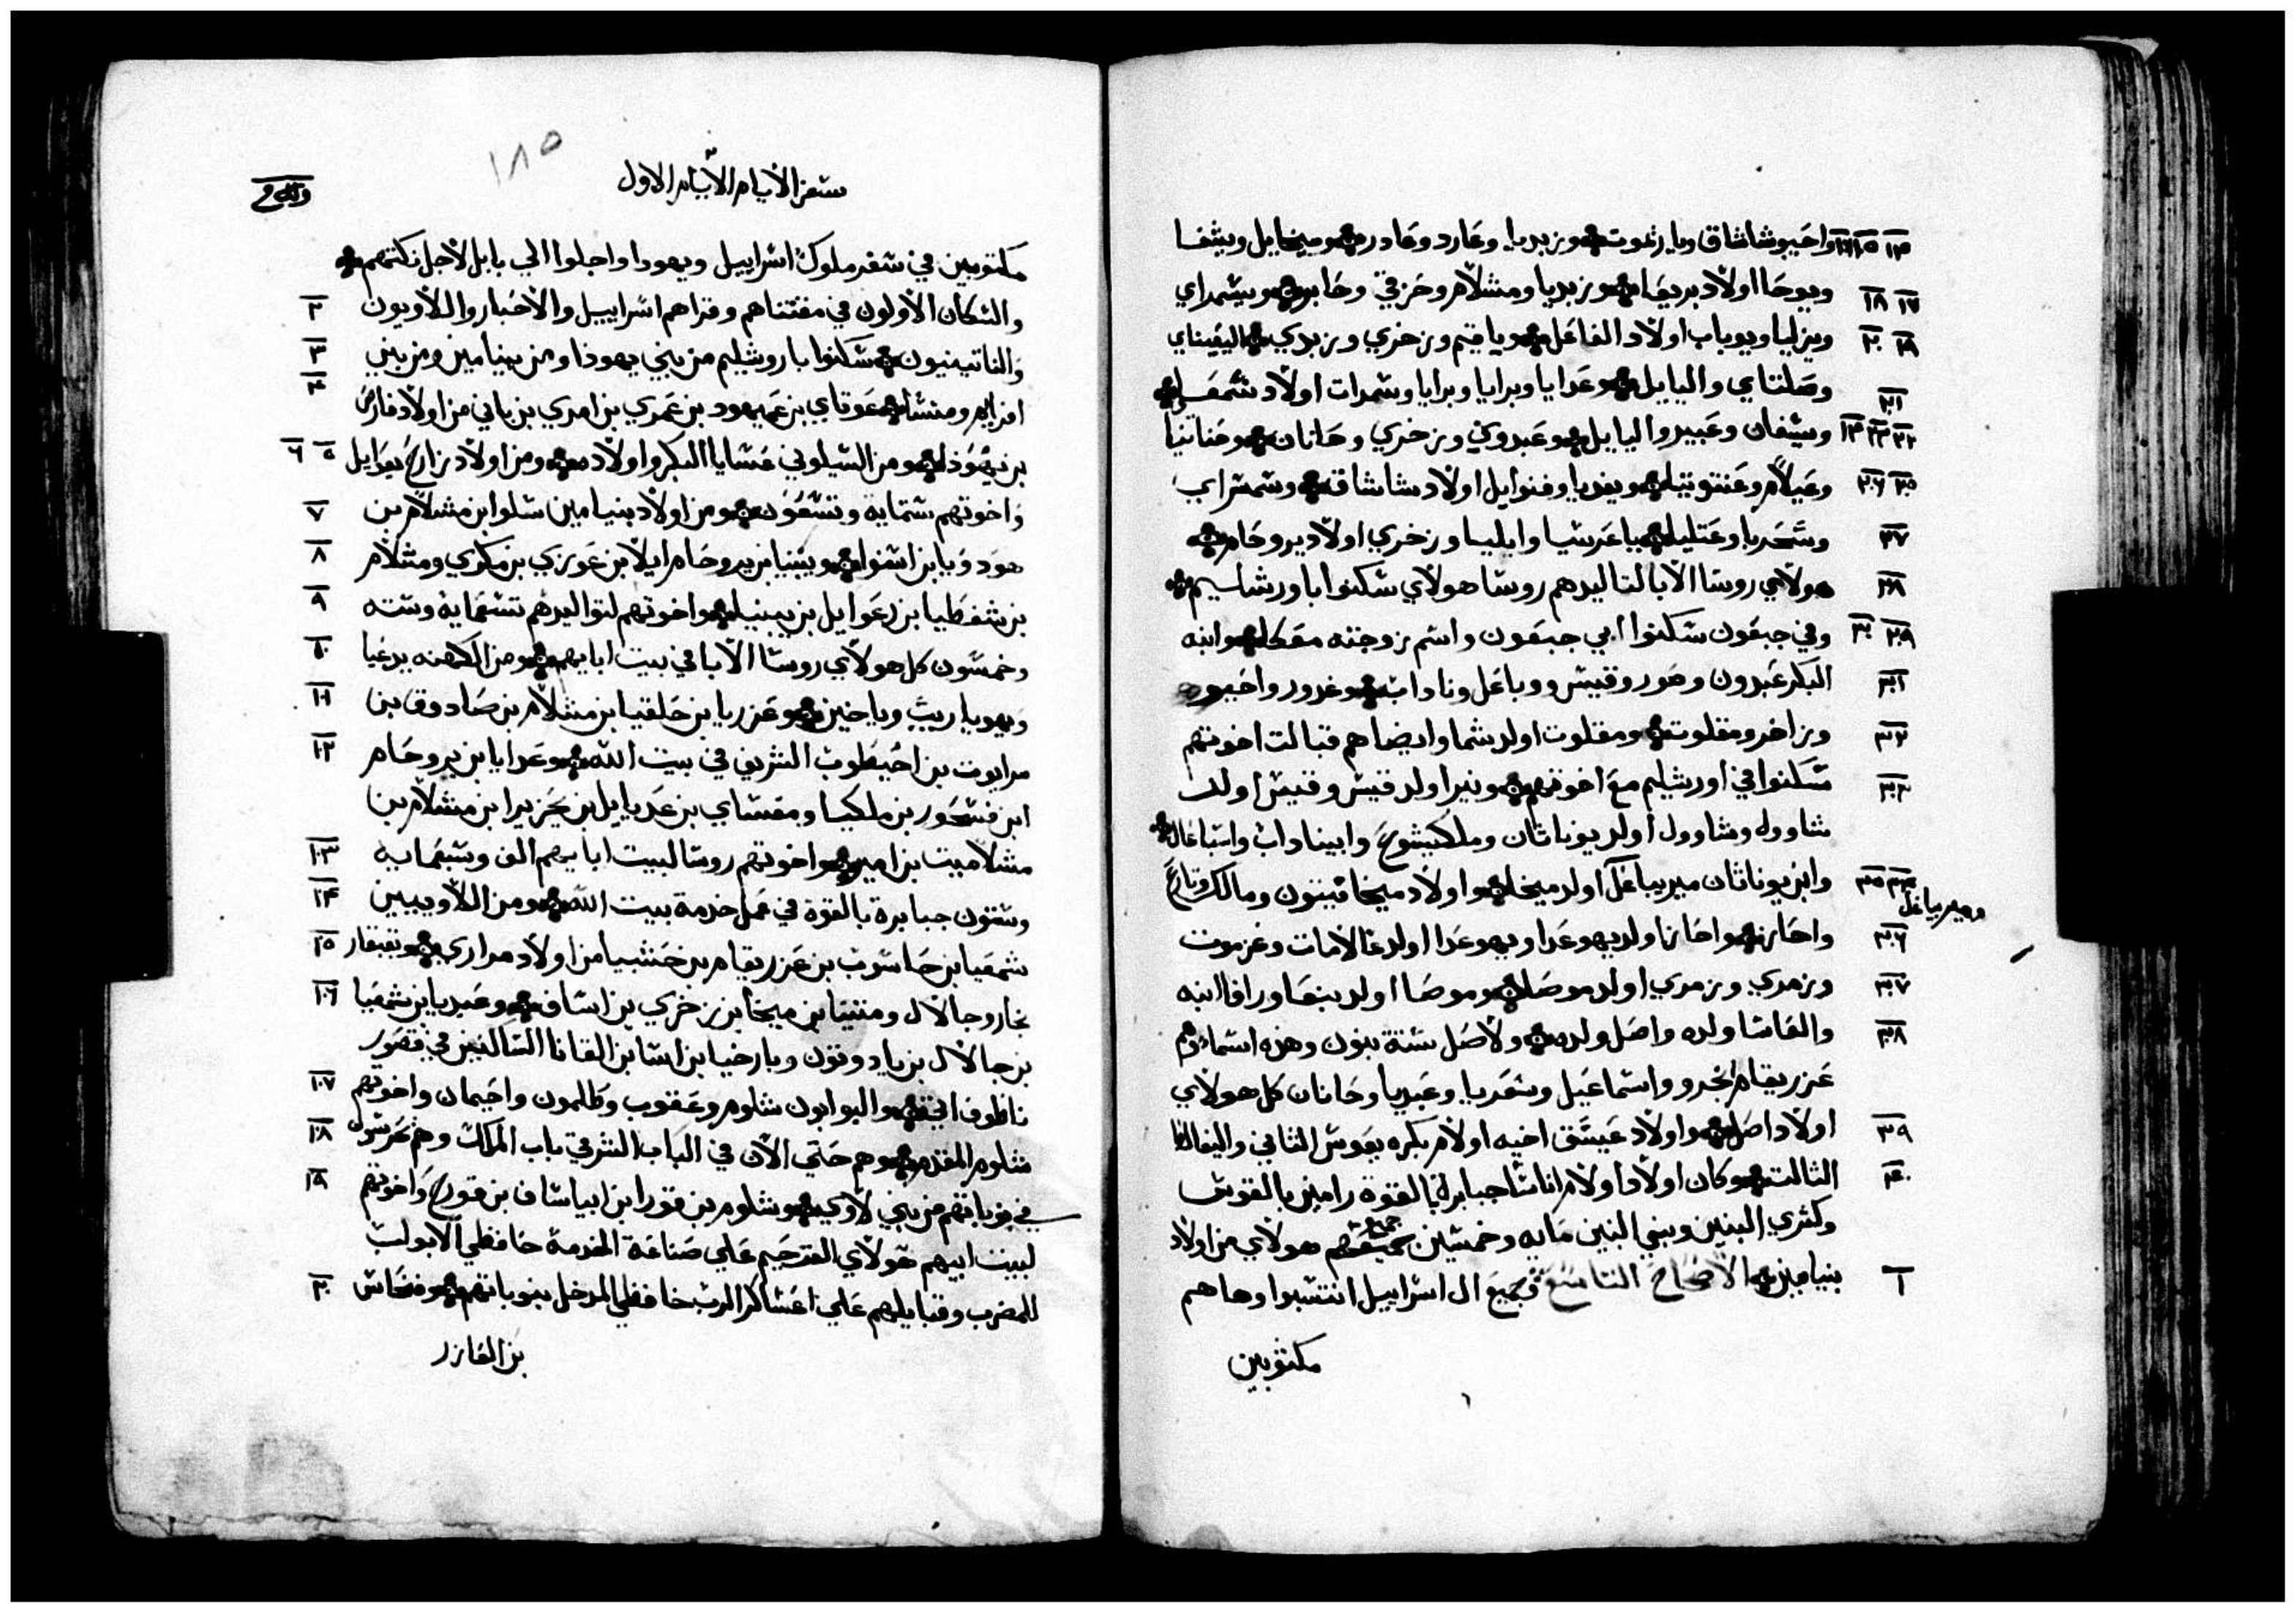 ١٤ ١٥ ١٦ واحيو شاشاق ويارغوت وزبديا وعارد وعادر وميخاييل ويشفا
١٧ ١٨ ويوحا اولاد بريعا وزبديا ومشلام وحزقي وحابر ويشمراي
١٩ ٢٠ ويزليا ويوباب اولاد الفاعل وياقيم وزخري وزبدي واليعيناي
٢١ وصلتاي واليايل وعدايا وبرايا وبرايا وشمرات اولاد شمعي
٢٢ ٢٣ ٢٤ ويشفان وعبيد واليايل وعبدون وزخري وحانان وحنانيا
٢٥ ٢٦ وعيلام وعنتوتيا ويفديا وفنوايل اولاد شاشاق وشمشراي
٢٧ وشحريا وعتليا ياعرشيا وايليا وزخري اولاد يروحام
٢٨ هولاي روسا الابا لتاليدهم روسا هولاي سكنوا باورشاليم
٢٩ ٣٠ وفي جبعون سكنوا ابي جبعون واسم زوجته معكا وابنه
٣١ البكر عبدون وصور وقيس وباعل وناداب وغدور واحيو
٣٢ وزاخر ومقلوت ومقلوت اولد شما وايضا هم قبالت اخوتهم
٣٣ سكنوا في اورشليم مع اخوتهم ونير اولد قيس وقيس اولد
شاوول وشاوول اولد يوناثان وملكيشوع وابيناداب واشباعال
٣٤ ٣٥ وابن يوناثان ميريباعل اولد ميخا واولاد ميخا فيتون ومالك وتارع
وميريباعل
٣٦ واحاز واحاز اولد يهوعدا ويهوعدا اولد غالامات وعزموت
٣٧ وزمري وزمري اولد موصا وموصا اولد بنعا ورافا ابنه
٣٨ والعاشا ولده واصل ولده ولاصل ستة بنون وهذه اسماوهم
عزريقام بخرو واسماعيل وشعريا وعبديا وحانان كل هولاي
٣٩ اولاد اصل واولاد عيشق اخيه اولام بكره يعوش الثاني واليفالط
٤٠ الثالث وكان اولاد اولام اناسا جبابرة بالقوة رامين بالقوس
وكثري البنين وبني البنين مايه وخمسين جميعهم هولاي من اولاد
١ بنيامين الاصحاح التاسع فجميع ال اسراييل انتسبوا وها هم
مكتوبين
١٨٥
سفر الايام الاول
مكتوبين في سفر ملوك اسراييل ويهودا واجلوا الي بابل لاجل نكثهم
٢ والسكان الاولون في مقتناهم وقراهم اسراييل والاحبار واللاويون
٣ والناتينيون سكنوا باروشليم من بني يهوذا ومن بنيامين ومن بني
٤ افرايم ومنسا عوتاي بن عميهود بن عمري بن امري بن باني من اولاد فارص
٥ ٦ بن يهوذا ومن الشيلوني عسايا البكر واولاده ومن اولاد زارح يعوايل
٧ واخوتهم ستمايه وتسعون ومن اولاد بنيامين سلوا ابن مشلام بن
٨ هودويا بن اسنوا ويبنيا بن يروحام ايلا بن عوزي بن مكري ومشلام
٩ بن شفطيا بن رعوايل بن يبنيا واخوتهم لتواليدهم تسعمايه وسته
١٠ وخمسون كل هولاي روسا الابا في بيت ابايهم ومن الكهنه يدعيا
١١ ويهوياريب وياخين وعزريا بن حلقيا بن مشلام بن صادوق بن
١٢ مرايوت بن احيطوب الشريف في بيت الله وعدايا بن يروحام
ابن فسحور بن ملكيا ومعساي بن عدياييل بن يحزيرا بن مشلام بن
١٣ مشلاميت بن امير واخوتهم روسا لبيت ابايهم الف وسبعمايه
١٤ وستون جبابرة بالقوة في عمل خدمة بيت الله ومن اللاويين
١٥ شمعيا بن حاسوب بن عزريقام بن حشبيا من اولاد مراري وبقبقار
١٦ خار وجالال ومتنيا بن ميخا بن زخري بن اساف وعبديا بن شمعيا
بن جالال بن يادوتون وبارخيا بن اسا بن القانا الساكنين في قصور
١٧ ناطوفاتي والبوابون شلوم وعقوب وطلمون واحيمان واخوتهم
١٨ شلوم المقدم وهم حتي الان في الباب الشرقي باب الملك وهم يحرسون
١٩ في نوباتهم من بني لاوي وشلوم بن قورا ابن ابياساف بن قورح واخوتهم
لبيت ابيهم هولاي القرحيم علي صناعة الخدمة حافظي الابواب
٢٠ للمضرب وقبايلهم علي اعساكر الرب حافظي المدخل بنوباتهم وفنحاس
بن العازر